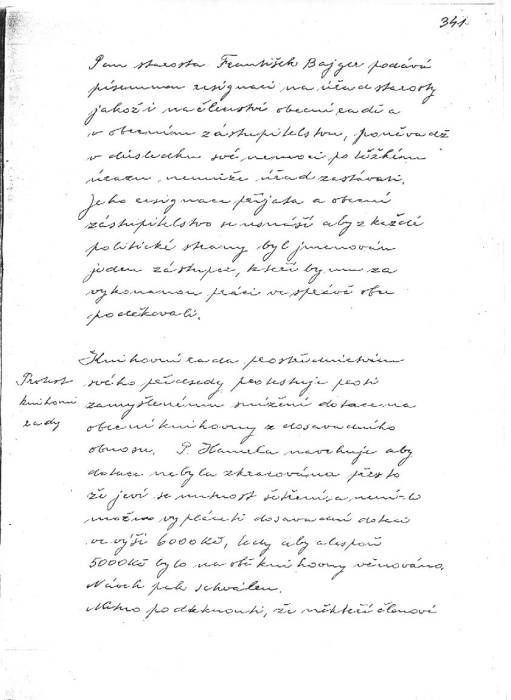 341
Pan starosta František Bajger podává
písemnou resignaci na úřad starosty
jakož i na členství obecní rady a
v obecním zastupitelstvu, poněvadž
v důsledku své nemoci po těžkém
úrazu nemůže úřad zastávati.
Jeho resignace přijata a obecní
zastupitelstvo se usnáší aby z každé
politické strany byl jmenován
jeden zástupce, kteří by mu za
vykonanou práci ve správě obce
poděkovali.
Knihovní rada prostřednictvím
svého předsedy protestuje proti
zamýšlenému snížení dotace na
obecní knihovny z dosavadního
obnosu. P. Hamela navrhuje aby
dotace nebyla zkracována přesto
že jeví se nutnost šetření, a není-li
možno vypláceti dosavadní dotaci
ve výši 6000 Kč, tedy aby alespoň
5000 Kč bylo na obě knihovny věnováno.
Návrh pak schválen.
Nutno podotknouti, že někteří členové
Protest
knihovní
rady